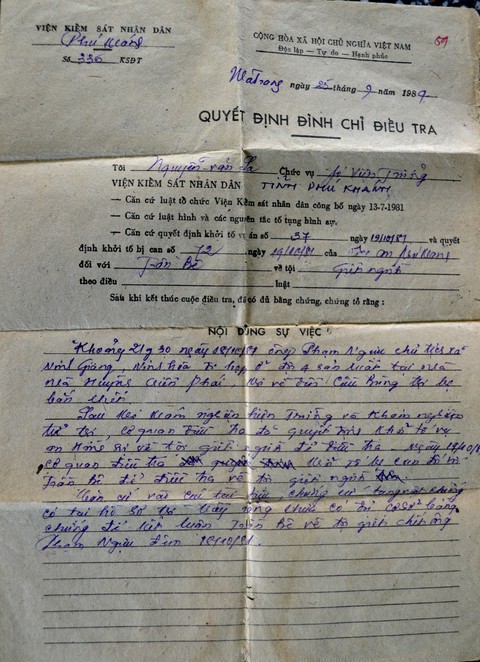 VIỆN KIỂM SÁT NHÂN DÂN
Phú Khánh
Số 336 KSĐT
CỘNG HÒA XÃ HỘI CHỦ NGHĨA VIỆT NAM
Độc lập — Tự do — Hạnh phúc
Nha Trang ngày 25 tháng 9 năm 1989
QUYẾT ĐỊNH ĐÌNH CHỈ ĐIỀU TRA
Tôi Nguyễn Văn Chức vụ Viện Trưởng
VIỆN KIỂM SÁT NHÂN DÂN TỈNH PHÚ KHÁNH
— Căn cứ luật tổ chức Viện Kiểm sát nhân dân công bố ngày 13-7-1981
— Căn cứ luật hình và các nguyên tắc tố tụng hình sự.
— Căn cứ quyết định khởi tố vụ án số 37 ngày 19/10/81 và quyết
định khởi tố bị can số 72 ngày 19/10/81 của
đối với Trần Bê về tội Giết người
theo điều luật
Sau khi kết thúc cuộc điều tra, đã có đủ bằng chứng, chứng tỏ rằng :
NỘI DUNG SỰ VIỆC
Khoảng 21g30 ngày 18/10/81 ông Phạm Ngựu chủ tịch xã
Ninh Giang, Ninh Hòa đi họp ở đội 4 sản xuất tại nhà
Huỳnh về đến Cầu thì bị
bắn chết.
Sau khi khám nghiệm hiện trường và khám nghiệm
tử thi, cơ quan điều tra đã quyết định khởi tố vụ
án về tội giết người để điều tra. Ngày
cơ quan điều tra khởi tố bị can đối với
Trần Bê để điều tra về tội giết người
Căn cứ vào các tài liệu chứng cứ
có tại hồ sơ thấy rằng chưa có đủ bằng
chứng để kết luận Trần Bê về tội giết chết ông
Phạm Ngựu đêm 18/10/81.